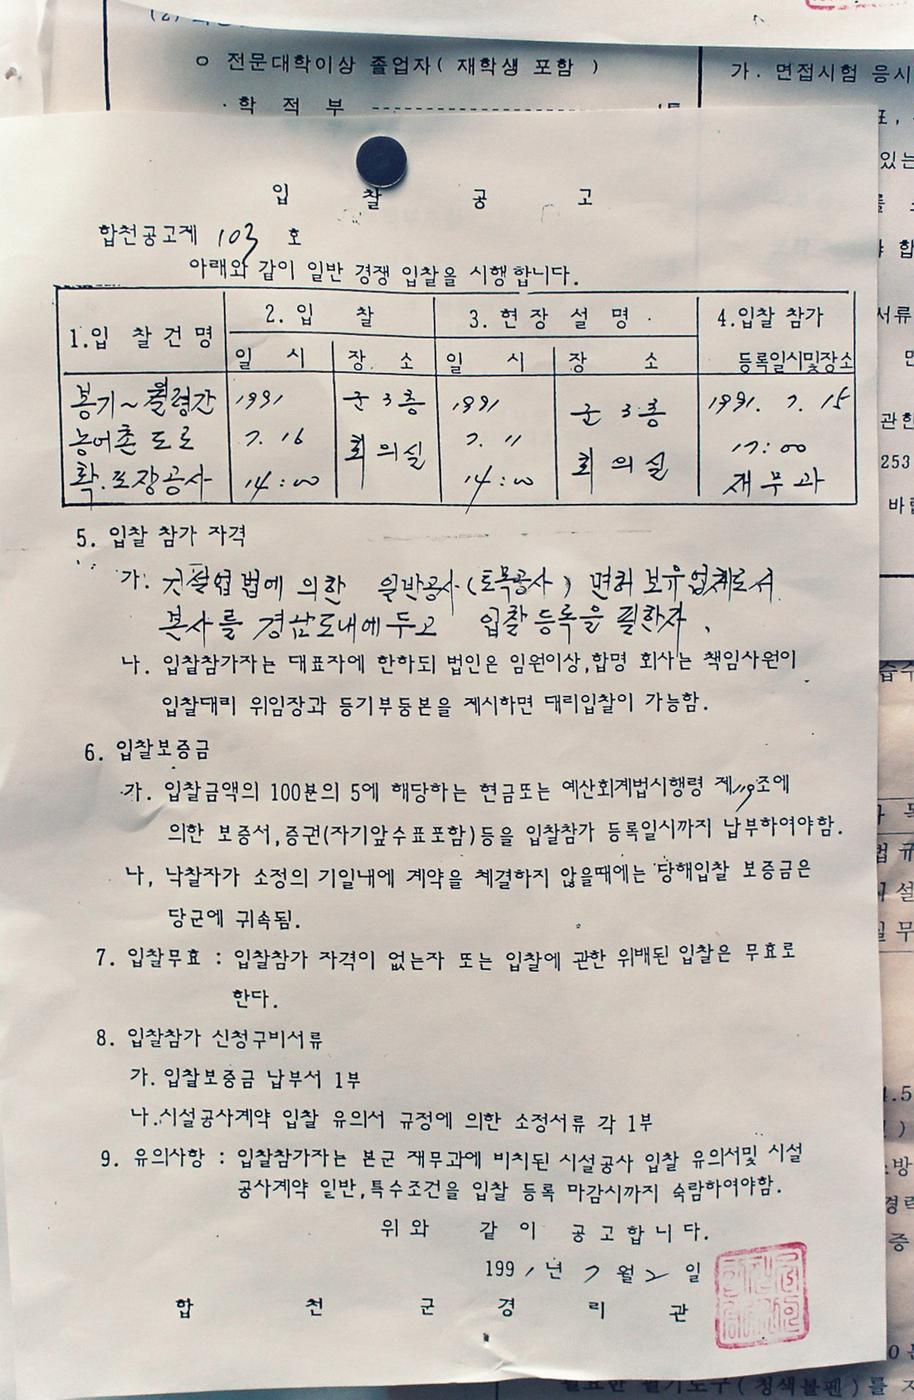 ㅇ 전문대학이상 졸업자( 재학생 포함 )
· 학 적 부
가. 면접시험 응시
있는
입 찰 공 고
합천공고제 103 호
아래와 같이 일반 경쟁 입찰을 시행합니다.
1.입 찰건명 2. 입 찰 3. 현장 설 명 · 4.입찰 참가
일 시 장 소 일 시 장 소 등록일시및장소
봉기~월령간 1991 군 3층 1991 군 3층 1991. 7. 15
농어촌 도로 7. 16 회의실 7. 11 회의실 17:00
확.포장공사 14:00 14:00 재무과
5. 입찰 참가 자격
가. 건설업법에 의한 일반공사(토목공사) 면허 보유업체로서
본사를 경남도내에두고 입찰등록을 필한자.
나. 입찰참가자는 대표자에 한하되 법인은 임원이상,합명 회사는 책임사원이
입찰대리 위임장과 등기부등본을 제시하면 대리입찰이 가능함.
6. 입찰보증금
가. 입찰금액의 100분의 5에 해당하는 현금또는 예산회계법시행령 제119조에
의한 보증서,증권(자기앞수표포함)등을 입찰참가 등록일시까지 납부하여야함.
나, 낙찰자가 소정의 기일내에 계약을 체결하지 않을때에는 당해입찰 보증금은
당군에 귀속됨.
7. 입찰무효 : 입찰참가 자격이 없는자 또는 입찰에 관한 위배된 입찰은 무효로
한다.
8. 입찰참가 신청구비서류
가. 입찰보증금 납부서 1부
나.시설공사계약 입찰 유의서 규정에 의한 소정서류 각 1부
9. 유의사항 : 입찰참가자는 본군 재무과에 비치된 시설공사 입찰 유의서및 시설
공사계약 일반,특수조건을 입찰 등록 마감시까지 숙람하여야함.
위와 같이 공고합니다.
1991년 7월 2일
합 천 군 경 리 관
서류
관한
253
바랍
필요한 필기도구(청색볼펜)를